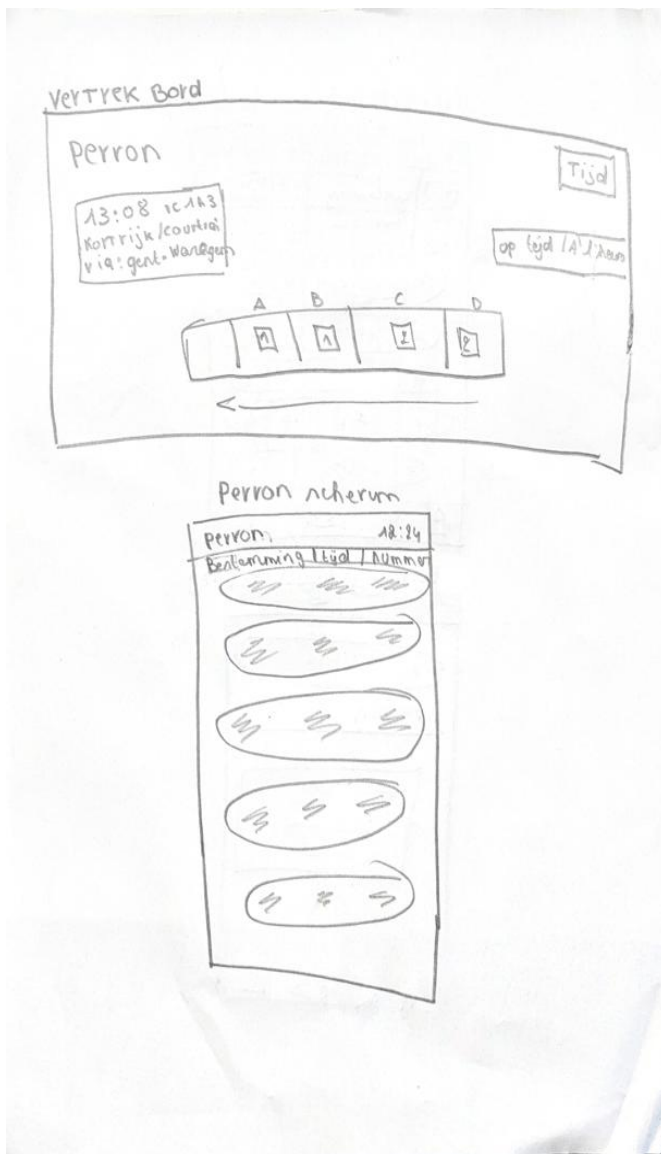 Vertrek Bord
Perron
Tijd
13:08 IC 1A3
Kortrijk/courtrai
via: gent. Waregem
op tijd / A l'heure
A B C D
1 1 2 2
Perron scherm
perron 12:24
Bestamming | tijd | nummer